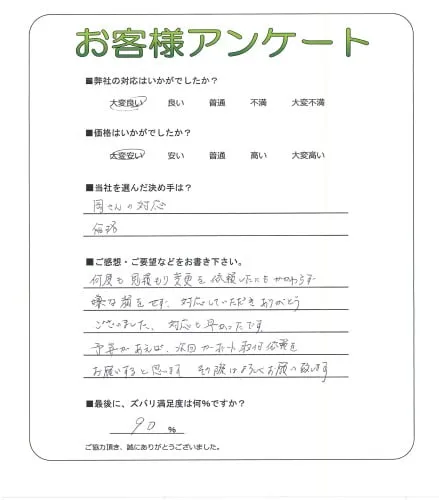 お客様アンケート
■弊社の対応はいかがでしたか？
大変良い 良い 普通 不満 大変不満
■価格はいかがでしたか？
大変安い 安い 普通 高い 大変高い
■当社を選んだ決め手は？
周さんの対応
価格
■ご感想・ご要望などをお書き下さい。
何度も見積もり変更を依頼したにもかかわらず
嫌な顔をせず、対応していただきありがとう
ございました。対応も早かったです。
予算があえば、次回カーポート取付依頼を
お願いすると思います その際はよろしくお願い致します
■最後に、ズバリ満足度は何％ですか？
90 ％
ご協力頂き、誠にありがとうございました。